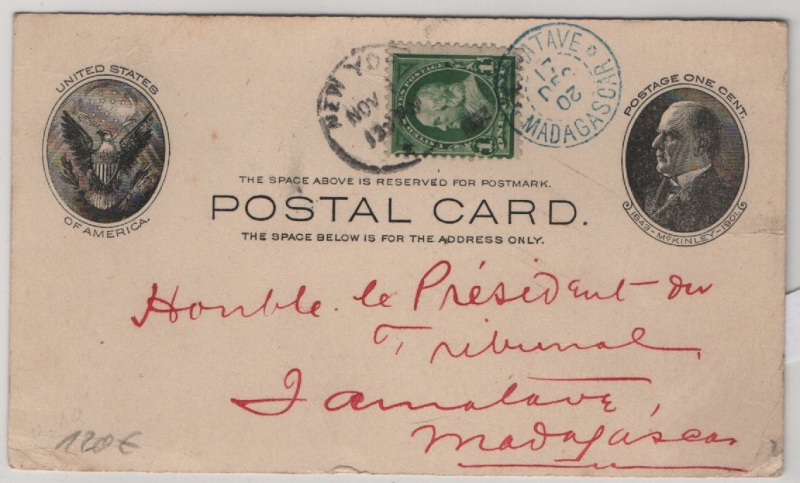 UNITED STATES
OF AMERICA.
NEW YO
NOV
13
U.S. POSTAGE
1 1
ATAVE *
17
DEC
02
MADAGASCAR
POSTAGE ONE CENT.
1843-McKINLEY-1901.
THE SPACE ABOVE IS RESERVED FOR POSTMARK.
POSTAL CARD.
THE SPACE BELOW IS FOR THE ADDRESS ONLY.
Honble. le Président du
Tribunal
Tamatave,
Madagascar
120€